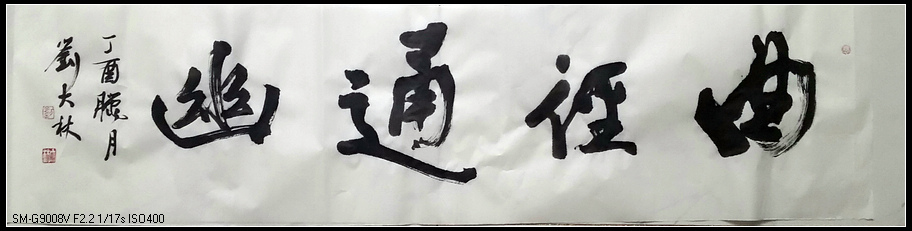 曲徑通幽
丁酉臘月
劉大林
SM-G9008V F2.2 1/17s ISO400